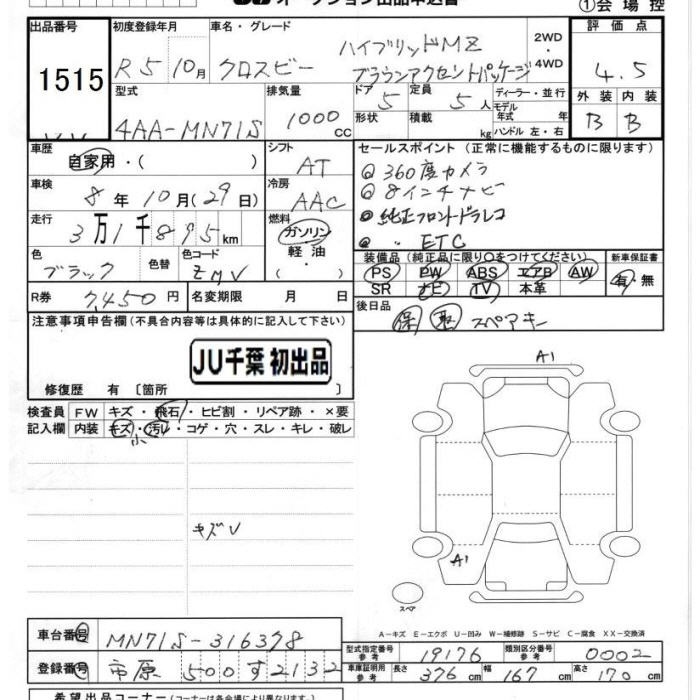 ①会場控
出品番号 1515
初度登録年月 R5 10月
車名・グレード クロスビー ハイブリッドMZ ブラウンアクセントパッケージ
2WD・4WD
評価点 4.5
型式 4AA-MN71S
排気量 1000cc
ドア 5
定員 5人
形状
積載 kg
ディーラー・並行
モデル年式 年式
ハンドル 左・右
外装 B
内装 B
車歴 自家用・( )
シフト AT
セールスポイント(正常に機能するものに限ります)
車検 8年10月(29日)
冷房 AAC
360度カメラ
8インチナビ
純正フロントドラレコ
〃 ETC
走行 3万1千895km
燃料 ガソリン 軽油 ・( )
色 ブラック
色替
色コード ZMV
装備品(純正品に限り○をつけてください)
PS PW ABS エアB AW
SR ナビ TV 本革
新車保証書 有・無
R券 7,450円
名変期限 月 日
後日品 保 取 スペアキー
注意事項申告欄(不具合内容等は具体的に記入して下さい)
JU千葉 初出品
修復歴 有〔箇所
検査員記入欄
FW キズ・飛石・ヒビ割・リペア跡・×要
内装 キズ・汚レ・コゲ・穴・スレ・キレ・破レ
小
キズV
A1
A1
スペア
A-キズ E-エクボ U-凹み W-補修跡 S-サビ C-腐食 XX-交換済
車台番号 MN71S-316378
登録番号 市原 500 す 2132
型式指定番号 参考 19176
類別区分番号 参考 0002
車庫証明用 参考 長さ 376cm 幅 167cm 高さ 170cm
希望出品コーナー